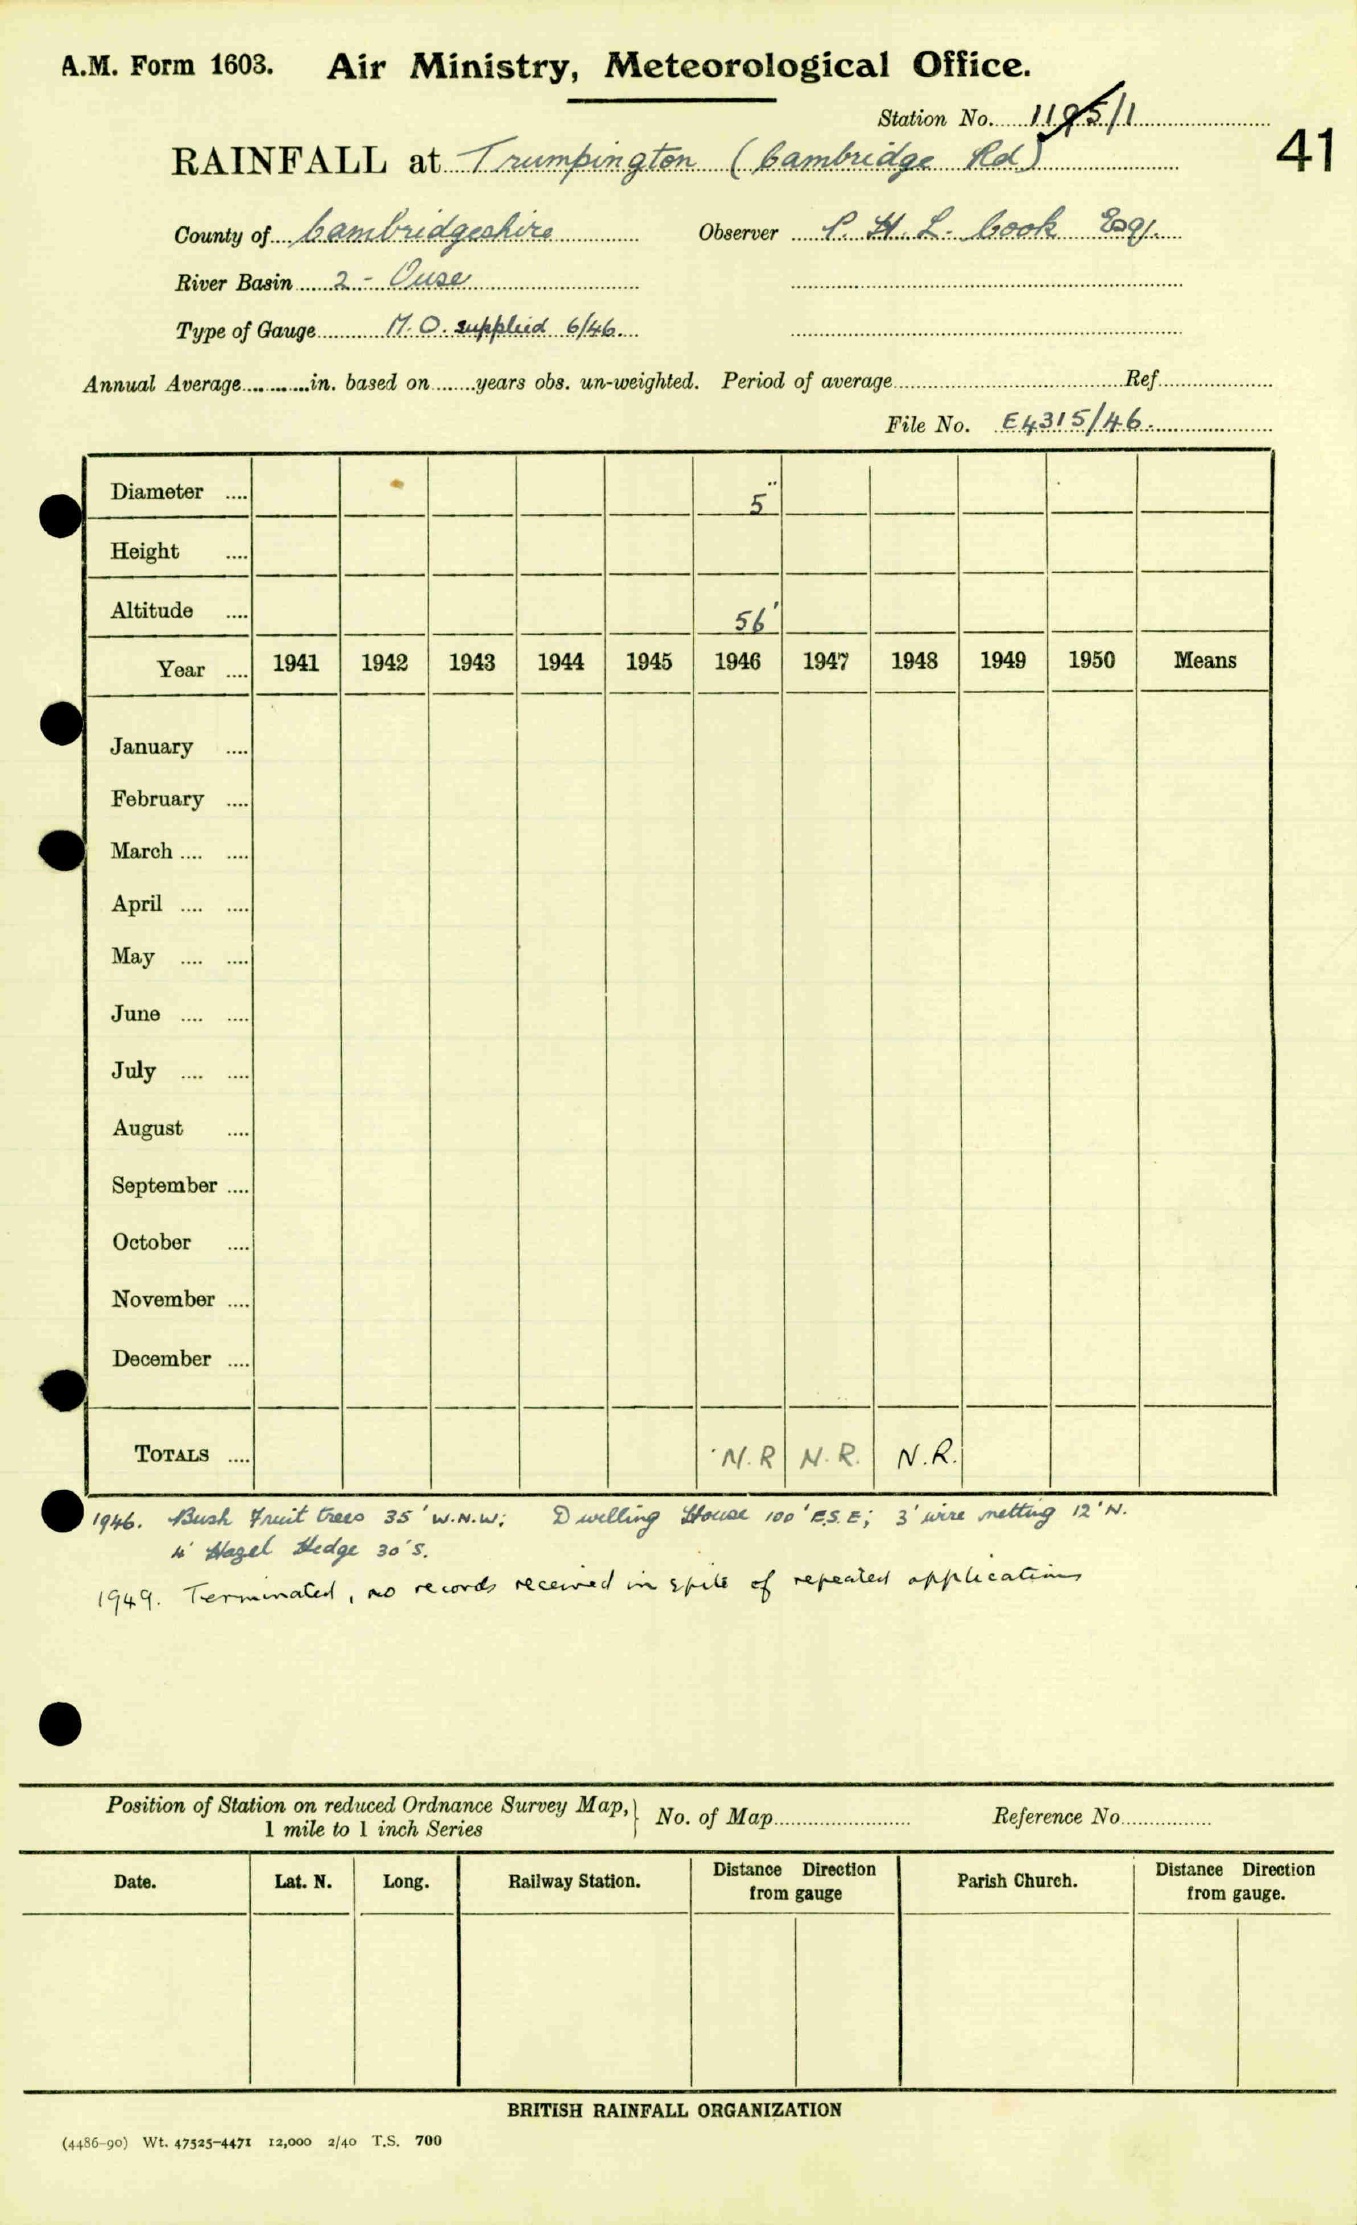 A.M. Form 1603. Air Ministry, Meteorological Office.
Station No. 1195/1
41
RAINFALL at Trumpington (Cambridge Rd)
County of Cambridgeshire Observer P. H. L. Cook Esq.
River Basin 2 - Ouse
Type of Gauge M.O. supplied 6/46.
Annual Average in. based on years obs. un-weighted. Period of average Ref.
File No. E4315/46.
Diameter .... 5"
Height ....
Altitude .... 56'
Year .... 1941 1942 1943 1944 1945 1946 1947 1948 1949 1950 Means
January ....
February ....
March .... ....
April .... ....
May .... ....
June .... ....
July .... ....
August ....
September ....
October ....
November ....
December ....
TOTALS .... N.R N.R. N.R.
1946. Bush Fruit trees 35' W.N.W; Dwelling House 100' E.S.E; 3' wire netting 12' N.
4' Hazel Hedge 30' S.
1949. Terminated, no records received in spite of repeated applications
Position of Station on reduced Ordnance Survey Map, } No. of Map Reference No.
1 mile to 1 inch Series
Date. Lat. N. Long. Railway Station. Distance Direction from gauge Parish Church. Distance Direction from gauge.
BRITISH RAINFALL ORGANIZATION
(4486-90) Wt. 47525-4471 12,000 2/40 T.S. 700